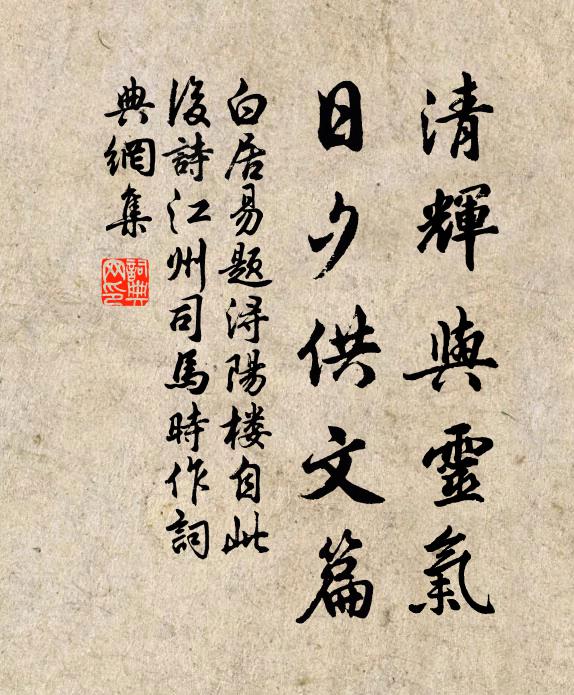 清輝與靈氣
日夕供文篇
白居易題潯陽楼自此
後詩江州司馬時作詞
典網集
詞典
网印